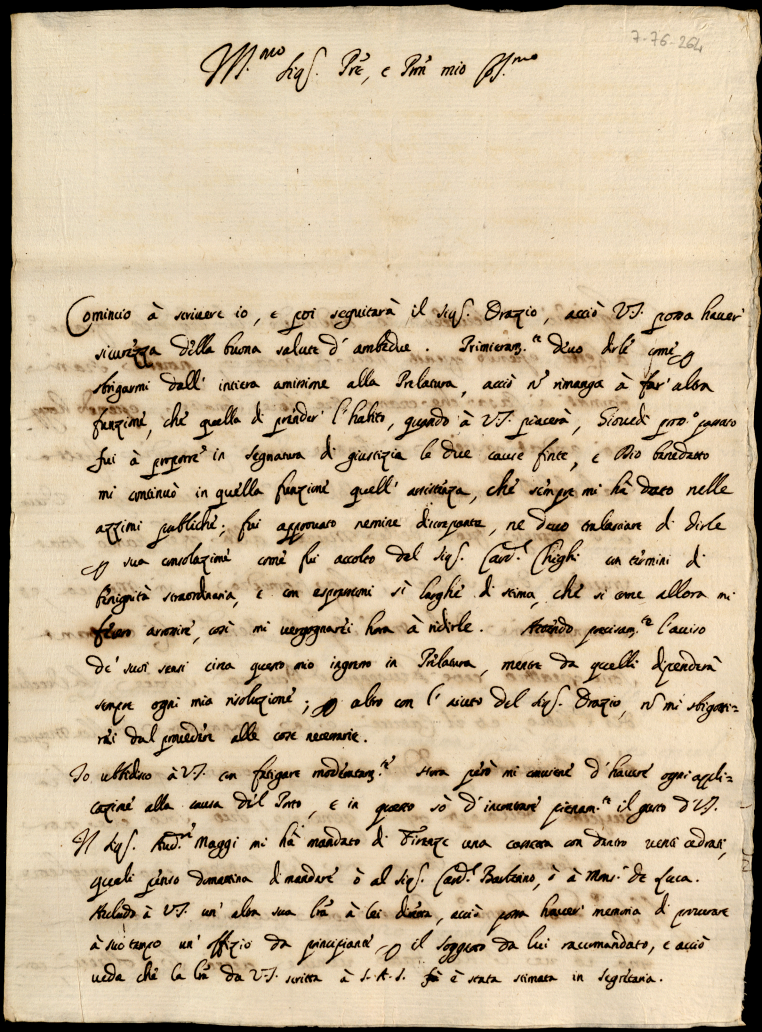 7-76-264
Ill.mo Sig.r P̃re, e Pr̃on mio Oss.mo
Comincio à scrivere io, e poi seguitarà il Sig.r Orazio, acciò V.S. possa haver'
sicurezza della buona salute d'ambedue. Primieram.te devo dirle come per
sbrigarmi dall'intiera amissione alla Prelatura, acciò nõ rimanga à far'altra
funzione, che quella di prender l'habito, quando à V.S. piacerà, Giovedì pross.o passato
fui à proporre in Segnatura di giustizia le due cause finte, e Dio benedetto
mi continuò in quella funzione quell'assistenza, che sempre mi hà dato nelle
azzioni publiche; fui approvato nemine discrepante, ne devo tralasciare di dirle
per sua consolazione come fui accolto dal Sig.r Card.l Chighi con termini di
benignità straordinaria, e con espressioni sì larghe di stima, che si come allora mi
fecero arrossire, così mi vergognarei hora à ridirle. Attendo precisam.te l'aviso
de' suoi sensi circa questo mio ingresso in Prelatura, mentre da quelli dipenderà
sempre ogni mia risoluzione; per altro con l'aiuto del Sig.r Orazio, nõ mi sbigotti-
rei dal provedere alle cose necessarie.
Io ubbidisco à V.S. con fatigare moderatam.te. Hora però mi conviene d'havere ogni appli-
cazione alla causa del Porto, e in questo sò d'incontrare pienam.te il gusto d'V.S.
Il Sig.r Aud.re Maggi mi hà mandato di Firenze una cassetta con dentro venti cedrati,
quali penso domattina di mandare ò al Sig.r Card.l , ò à Mons.r de Luca.
Accludo à V.S. un'altra sua l̃ra à lei diretta, acciò possa haver memoria di procurare
à suo tempo un'offizio da principiante per il soggetto da lui raccomandato, e acciò
veda che la l̃ra da V.S. scritta à S.A.S. è stata stimata in Segretaria.